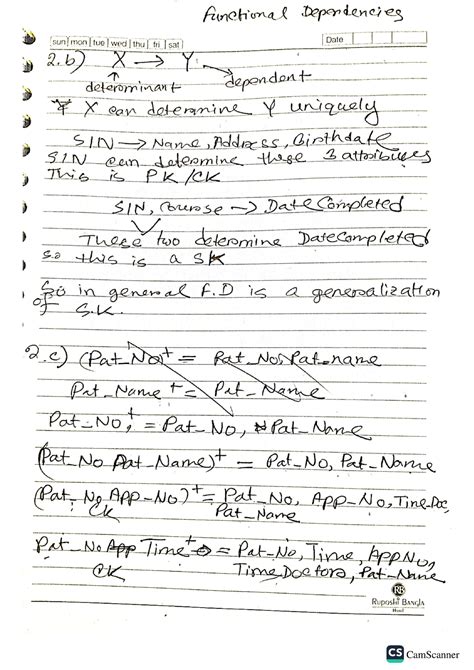 Functional Dependencies
sun mon tue wed thu fri sat Date
2.b) X → Y
determinant dependent
X can determine Y uniquely
SIN → Name, Address, Birthdate
SIN can determine these 3 attributes
This is PK/CK
SIN, Course → DateCompleted
These two determine DateCompleted
so this is a SK
So in general F.D is a generalization
of S.K.
2.c) (Pat_No)+ = Pat_No, Pat_name
Pat_Name+ = Pat_Name
Pat_No+ = Pat_No, Pat_Name
(Pat_No Pat_Name)+ = Pat_No, Pat_Name
(Pat_No App-No)+ = Pat_No, App-No, Time, Doc,
CK Pat_Name
Pat_No Time+ = Pat_No, Time, AppNo,
CK Time, Doctors, Pat-Name
RB
RUPOSHI BANGLA
Hotel
CS CamScanner